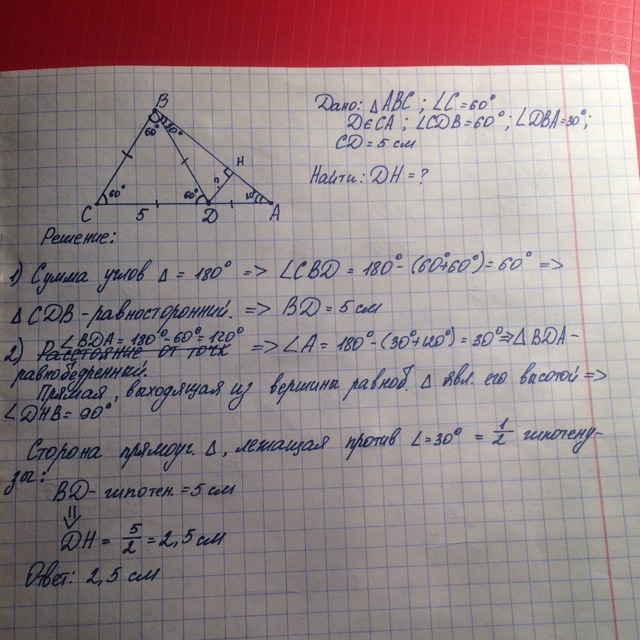 B
60° 30°
H
?
C 60° 5 60° D 30° A
Дано: △ABC ; ∠C=60°
D∈CA ; ∠CDB=60° ; ∠DBA=30°;
CD=5 см
Найти: DH = ?
Решение:
1) Сумма углов △ = 180° => ∠CBD = 180°-(60°+60°)=60° =>
△CDB-равносторонний. => BD=5 см
∠BDA=180°-60°=120°
2) Расстояние от точк => ∠A = 180°-(30°+120°)=30°=>△BDA-
равнобедренный.
Прямая, выходящая из вершины равноб. △ явл. его высотой =>
∠DHB=90°
Сторона прямоуг. △, лежащая против ∠=30° = 1/2 гипотену-
зы:
BD-гипотен.=5 см
⇓
DH = 5/2 = 2,5 см
Ответ: 2,5 см